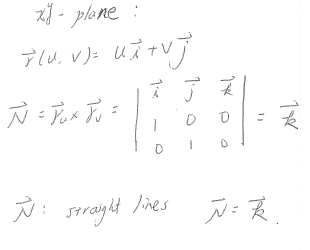 xy - plane :
r⃗(u, v) = u i⃗ + v j⃗
N⃗ = r⃗u x r⃗v = | i⃗ j⃗ k⃗ | = k⃗
| 1 0 0 |
| 0 1 0 |
N⃗ : straight lines N⃗ = k⃗.